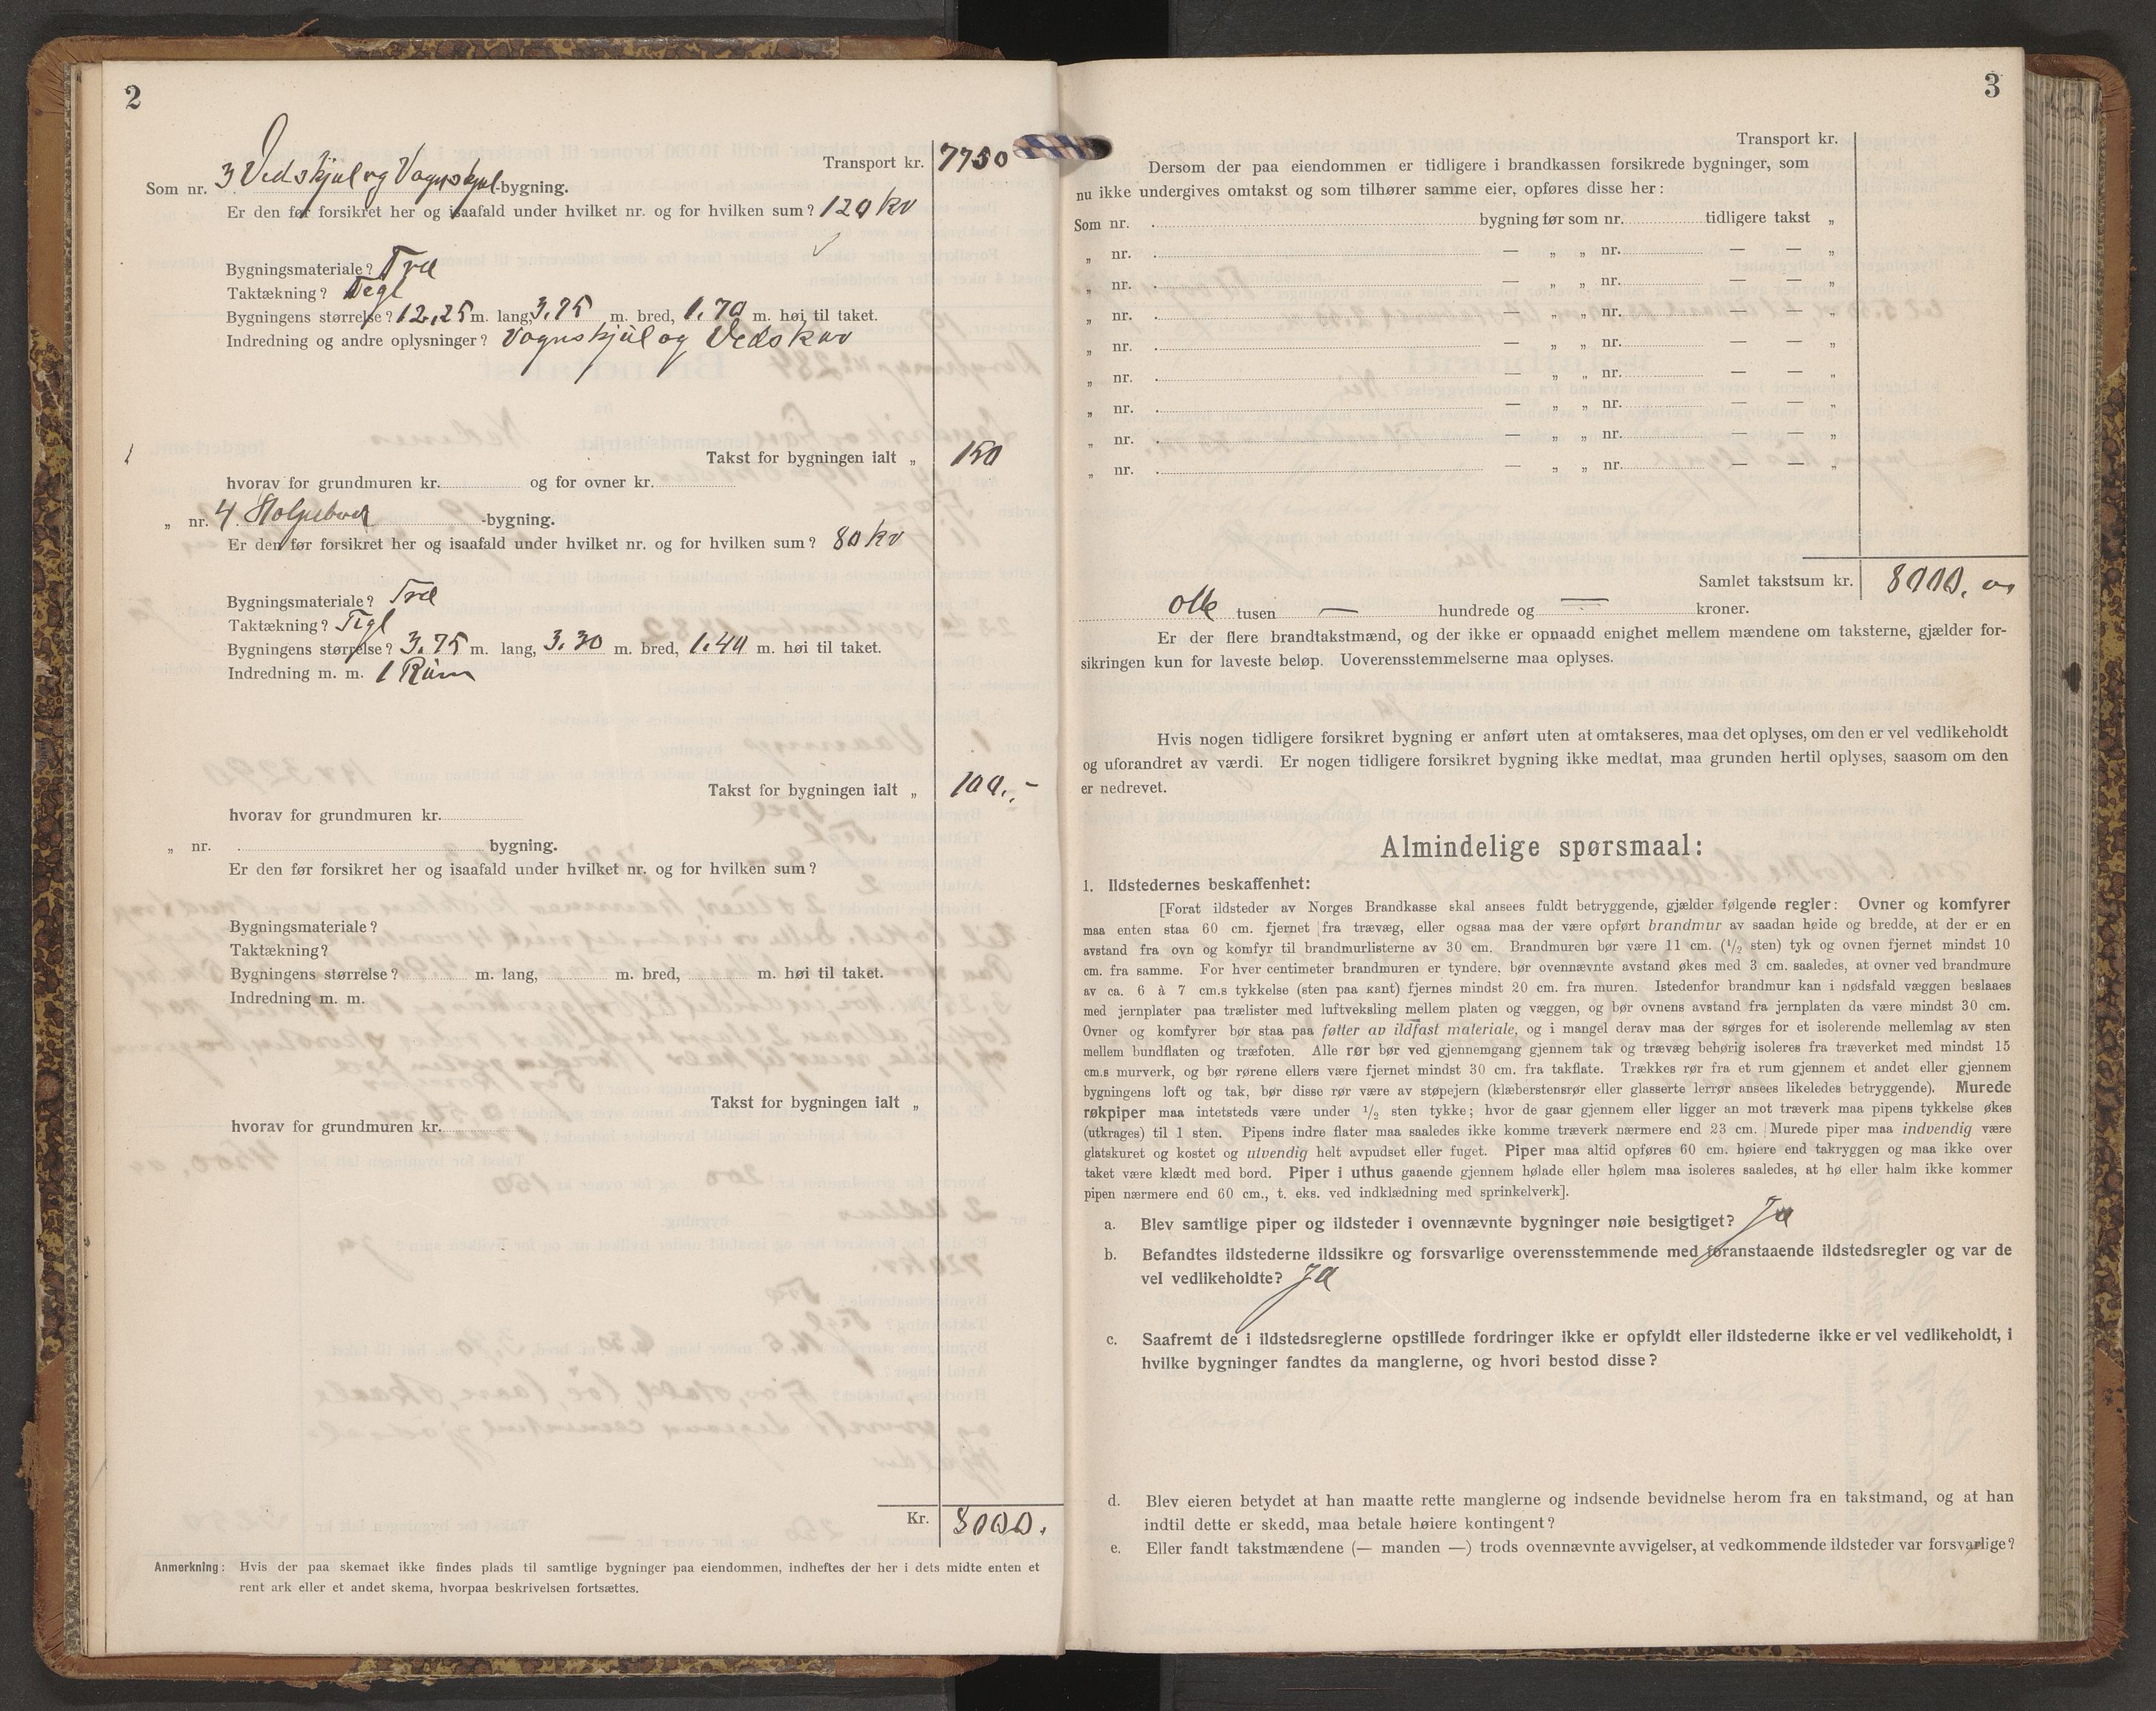 2
Transport kr. 7750
Som nr. 3 Vedskjul og Vognskjul-bygning.
Er den før forsikret her og isaafald under hvilket nr. og for hvilken sum? 120 kr
Bygningsmateriale? Træ
Taktækning? Tegl
Bygningens størrelse? 12,25 m. lang, 3.75 m. bred, 1.70 m. høi til taket.
Indredning og andre oplysninger? Vognskjul og Vedskur
Takst for bygningen ialt „ 150
hvorav for grundmuren kr. og for ovner kr.
„ nr. 4 -bygning.
Er den før forsikret her og isaafald under hvilket nr. og for hvilken sum? 80 kr
Bygningsmateriale? Træ
Taktækning? Tegl
Bygningens størrelse? 3.75 m. lang, 3.30 m. bred, 1.40 m. høi til taket.
Indredning m. m. 1 Rum
Takst for bygningen ialt „ 100.-
hvorav for grundmuren kr.
„ nr. bygning.
Er den før forsikret her og isaafald under hvilket nr. og for hvilken sum?
Bygningsmateriale?
Taktækning?
Bygningens størrelse? m. lang, m. bred, m. høi til taket.
Indredning m. m.
Takst for bygningen ialt „
hvorav for grundmuren kr.
Kr. 8000.
Anmerkning: Hvis der paa skemaet ikke findes plads til samtlige bygninger paa eiendommen, indheftes der her i dets midte enten et
rent ark eller et andet skema, hvorpaa beskrivelsen fortsættes.
3
Transport kr.
Dersom der paa eiendommen er tidligere i brandkassen forsikrede bygninger, som
nu ikke undergives omtakst og som tilhører samme eier, opføres disse her:
Som nr. bygning før som nr. tidligere takst „
„ nr. — „ „ nr. — — „
„ nr. — „ „ nr. — — „
„ nr. — „ „ nr. — — „
„ nr. — „ „ nr. — — „
„ nr. — „ „ nr. — — „
„ nr. — „ „ nr. — — „
„ nr. — „ „ nr. — — „
„ nr. — „ „ nr. — — „
Samlet takstsum kr. 8000. 00
otte tusen — hundrede og — kroner.
Er der flere brandtakstmænd, og der ikke er opnaadd enighet mellem mændene om taksterne, gjælder for-
sikringen kun for laveste beløp. Uoverensstemmelserne maa oplyses.
Hvis nogen tidligere forsikret bygning er anført uten at omtakseres, maa det oplyses, om den er vel vedlikeholdt
og uforandret av værdi. Er nogen tidligere forsikret bygning ikke medtat, maa grunden hertil oplyses, saasom om den
er nedrevet.
Almindelige spørsmaal:
1. Ildstedernes beskaffenhet:
[Forat ildsteder av Norges Brandkasse skal ansees fuldt betryggende, gjælder følgende regler: Ovner og komfyrer
maa enten staa 60 cm. fjernet fra trævæg, eller ogsaa maa der være opført brandmur av saadan høide og bredde, at der er en
avstand fra ovn og komfyr til brandmurlisterne av 30 cm. Brandmuren bør være 11 cm. (1/2 sten) tyk og ovnen fjernet mindst 10
cm. fra samme. For hver centimeter brandmuren er tyndere, bør ovennævnte avstand økes med 3 cm. saaledes, at ovner ved brandmure
av ca. 6 à 7 cm.s tykkelse (sten paa kant) fjernes mindst 20 cm. fra muren. Istedenfor brandmur kan i nødsfald væggen beslaaes
med jernplater paa trælister med luftveksling mellem platen og væggen, og bør ovnens avstand fra jernplaten da være mindst 30 cm.
Ovner og komfyrer bør staa paa føtter av ildfast materiale, og i mangel derav maa der sørges for et isolerende mellemlag av sten
mellem bundflaten og træfoten. Alle rør bør ved gjennemgang gjennem tak og trævæg behørig isoleres fra træverket med mindst 15
cm.s murverk, og bør rørene ellers være fjernet mindst 30 cm. fra takflate. Trækkes rør fra et rum gjennem et andet eller gjennem
bygningens loft og tak, bør disse rør være av støpejern (klæberstensrør eller glasserte lerrør ansees likeledes betryggende). Murede
røkpiper maa intetsteds være under 1/2 sten tykke; hvor de gaar gjennem eller ligger an mot træverk maa pipens tykkelse økes
(utkrages) til 1 sten. Pipens indre flater maa saaledes ikke komme træverk nærmere end 23 cm. Murede piper maa indvendig være
glatskuret og kostet og utvendig helt avpudset eller fuget. Piper maa altid opføres 60 cm. høiere end takryggen og maa ikke over
taket være klædt med bord. Piper i uthus gaaende gjennem hølade eller hølem maa isoleres saaledes, at hø eller halm ikke kommer
pipen nærmere end 60 cm., t. eks. ved indklædning med sprinkelverk].
a. Blev samtlige piper og ildsteder i ovennævnte bygninger nøie besigtiget? Ja
b. Befandtes ildstederne ildssikre og forsvarlige overensstemmende med foranstaaende ildstedsregler og var de
vel vedlikeholdte? Ja
c. Saafremt de i ildstedsreglerne opstillede fordringer ikke er opfyldt eller ildstederne ikke er vel vedlikeholdt, i
hvilke bygninger fandtes da manglerne, og hvori bestod disse?
d. Blev eieren betydet at han maatte rette manglerne og indsende bevidnelse herom fra en takstmand, og at han
indtil dette er skedd, maa betale høiere kontingent?
e. Eller fandt takstmændene (— manden —) trods ovennævnte avvigelser, at vedkommende ildsteder var forsvarlige?